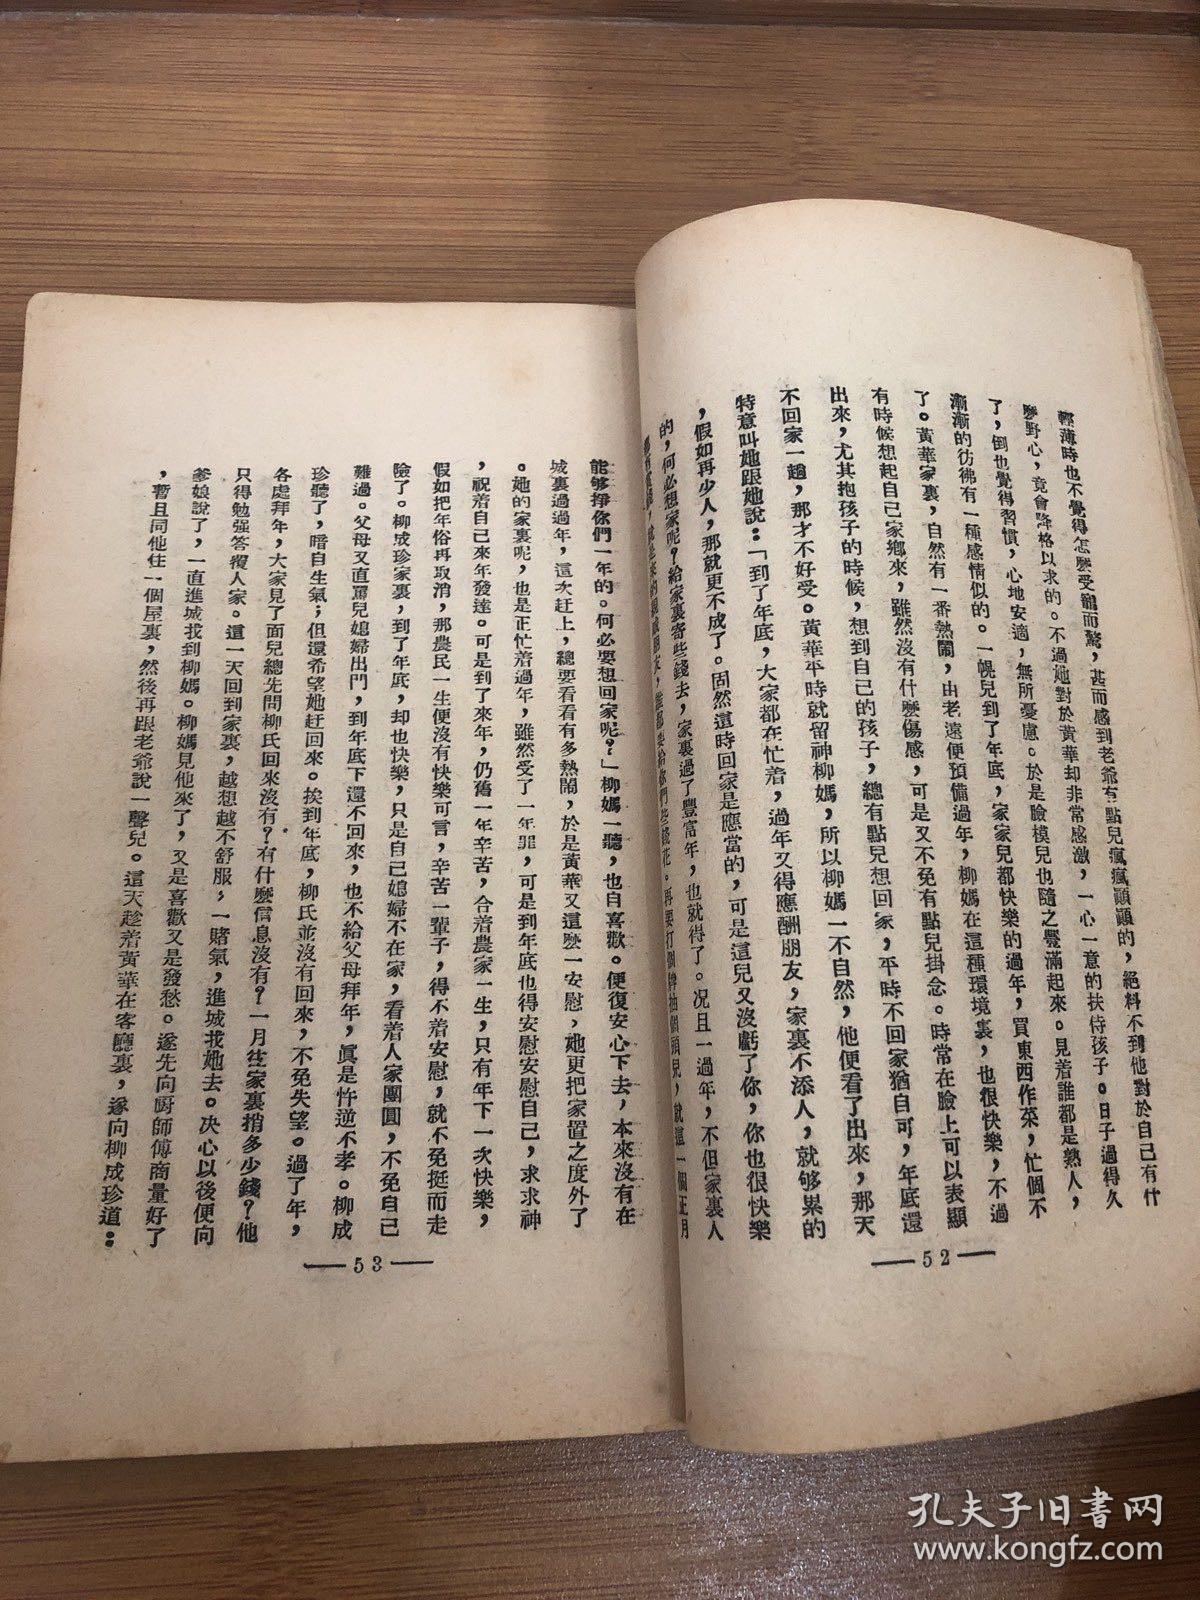 輕薄時也不覺得怎麽受寵而驚，甚而感到老爺有點兒瘋瘋顚顚的，絕料不到他對於自己有什
麽野心，竟會降格以求的。不過她對於黃華却非常感激，一心一意的扶侍孩子。日子過得久
了，倒也覺得習慣，心地安適，無所憂慮。於是臉模兒也隨之豐滿起來。見着誰都是熟人，
漸漸的彷彿有一種感情似的。一幌兒到了年底，家家兒都快樂的過年，買東西作菜，忙個不
了。黃華家裏，自然有一番熱鬧，由老遠便預備過年，柳媽在這種環境裏，也很快樂，不過
有時候想起自己家鄉來，雖然沒有什麽傷感，可是又不免有點兒掛念。時常在臉上可以表顯
出來，尤其抱孩子的時候，想到自己的孩子，總有點兒想回家，平時不回家猶自可，年底還
不回家一趟，那才不好受。黃華平時就留神柳媽，所以柳媽一不自然，他便看了出來，那天
特意叫她跟她說：「到了年底，大家都在忙着，過年又得應酬朋友，家裏不添人，就够累的
，假如再少人，那就更不成了。固然這時回家是應當的，可是這兒又沒虧了你，你也很快樂
的，何必想家呢？給家裏寄些錢去，家裏過了豐富年，也就得了。况且一過年，不但家裏人
來的親戚朋友，誰都要給你們些錢花。再要打個牌抽個頭兒，就這一個正月
— 52 —
能够掙你們一年的。何必要想回家呢？」柳媽一聽，也自喜歡。便復安心下去，本來沒有在
城裏過過年，這次赶上，總要看看有多熱鬧，於是黃華又這麽一安慰，她更把家置之度外了
。她的家裏呢，也是正忙着過年，雖然受了一年罪，可是到年底也得安慰安慰自己，求求神
，祝着自己來年發達。可是到了來年，仍舊一年辛苦，合着農家一生，只有年下一次快樂，
假如把年俗再取消，那農民一生便沒有快樂可言，辛苦一輩子，得不着安慰，就不免挺而走
險了。柳成珍家裏，到了年底，却也快樂，只是自己媳婦不在家，看着人家團圓，不免自己
難過。父母又直駡兒媳婦出門，到年底下還不回來，也不給父母拜年，眞是忤逆不孝。柳成
珍聽了，暗自生氣；但還希望她赶回來。挨到年底，柳氏並沒有回來，不免失望。過了年，
各處拜年，大家見了面兒總先問柳氏回來沒有？有什麽信息沒有？一月往家裏捎多少錢？他
只得勉强答覆人家。這一天回到家裏，越想越不舒服，一賭氣，進城找她去。決心以後便向
爹娘說了，一直進城找到柳媽。柳媽見他來了，又是喜歡又是發愁。遂先向廚師傅商量好了
，暫且同他住一個屋裏，然後再跟老爺說一聲兒。這天趁着黃華在客廳裏，遂向柳成珍道：
— 53 —
孔夫子旧書网
www.kongfz.com